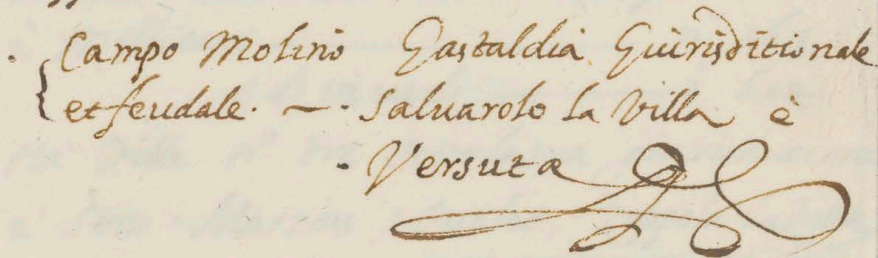 Campo Molino Gastaldia Giurisditionale
et feudale. – . Saluarolo la Villa è
. Versuta